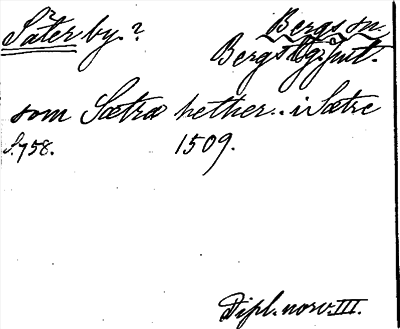 Säterby.? Bergs sn.
Bergs tg. Jmt.
som Sætra hether .. i Sætre
S. 758. 1509.
Dipl. norv. III.